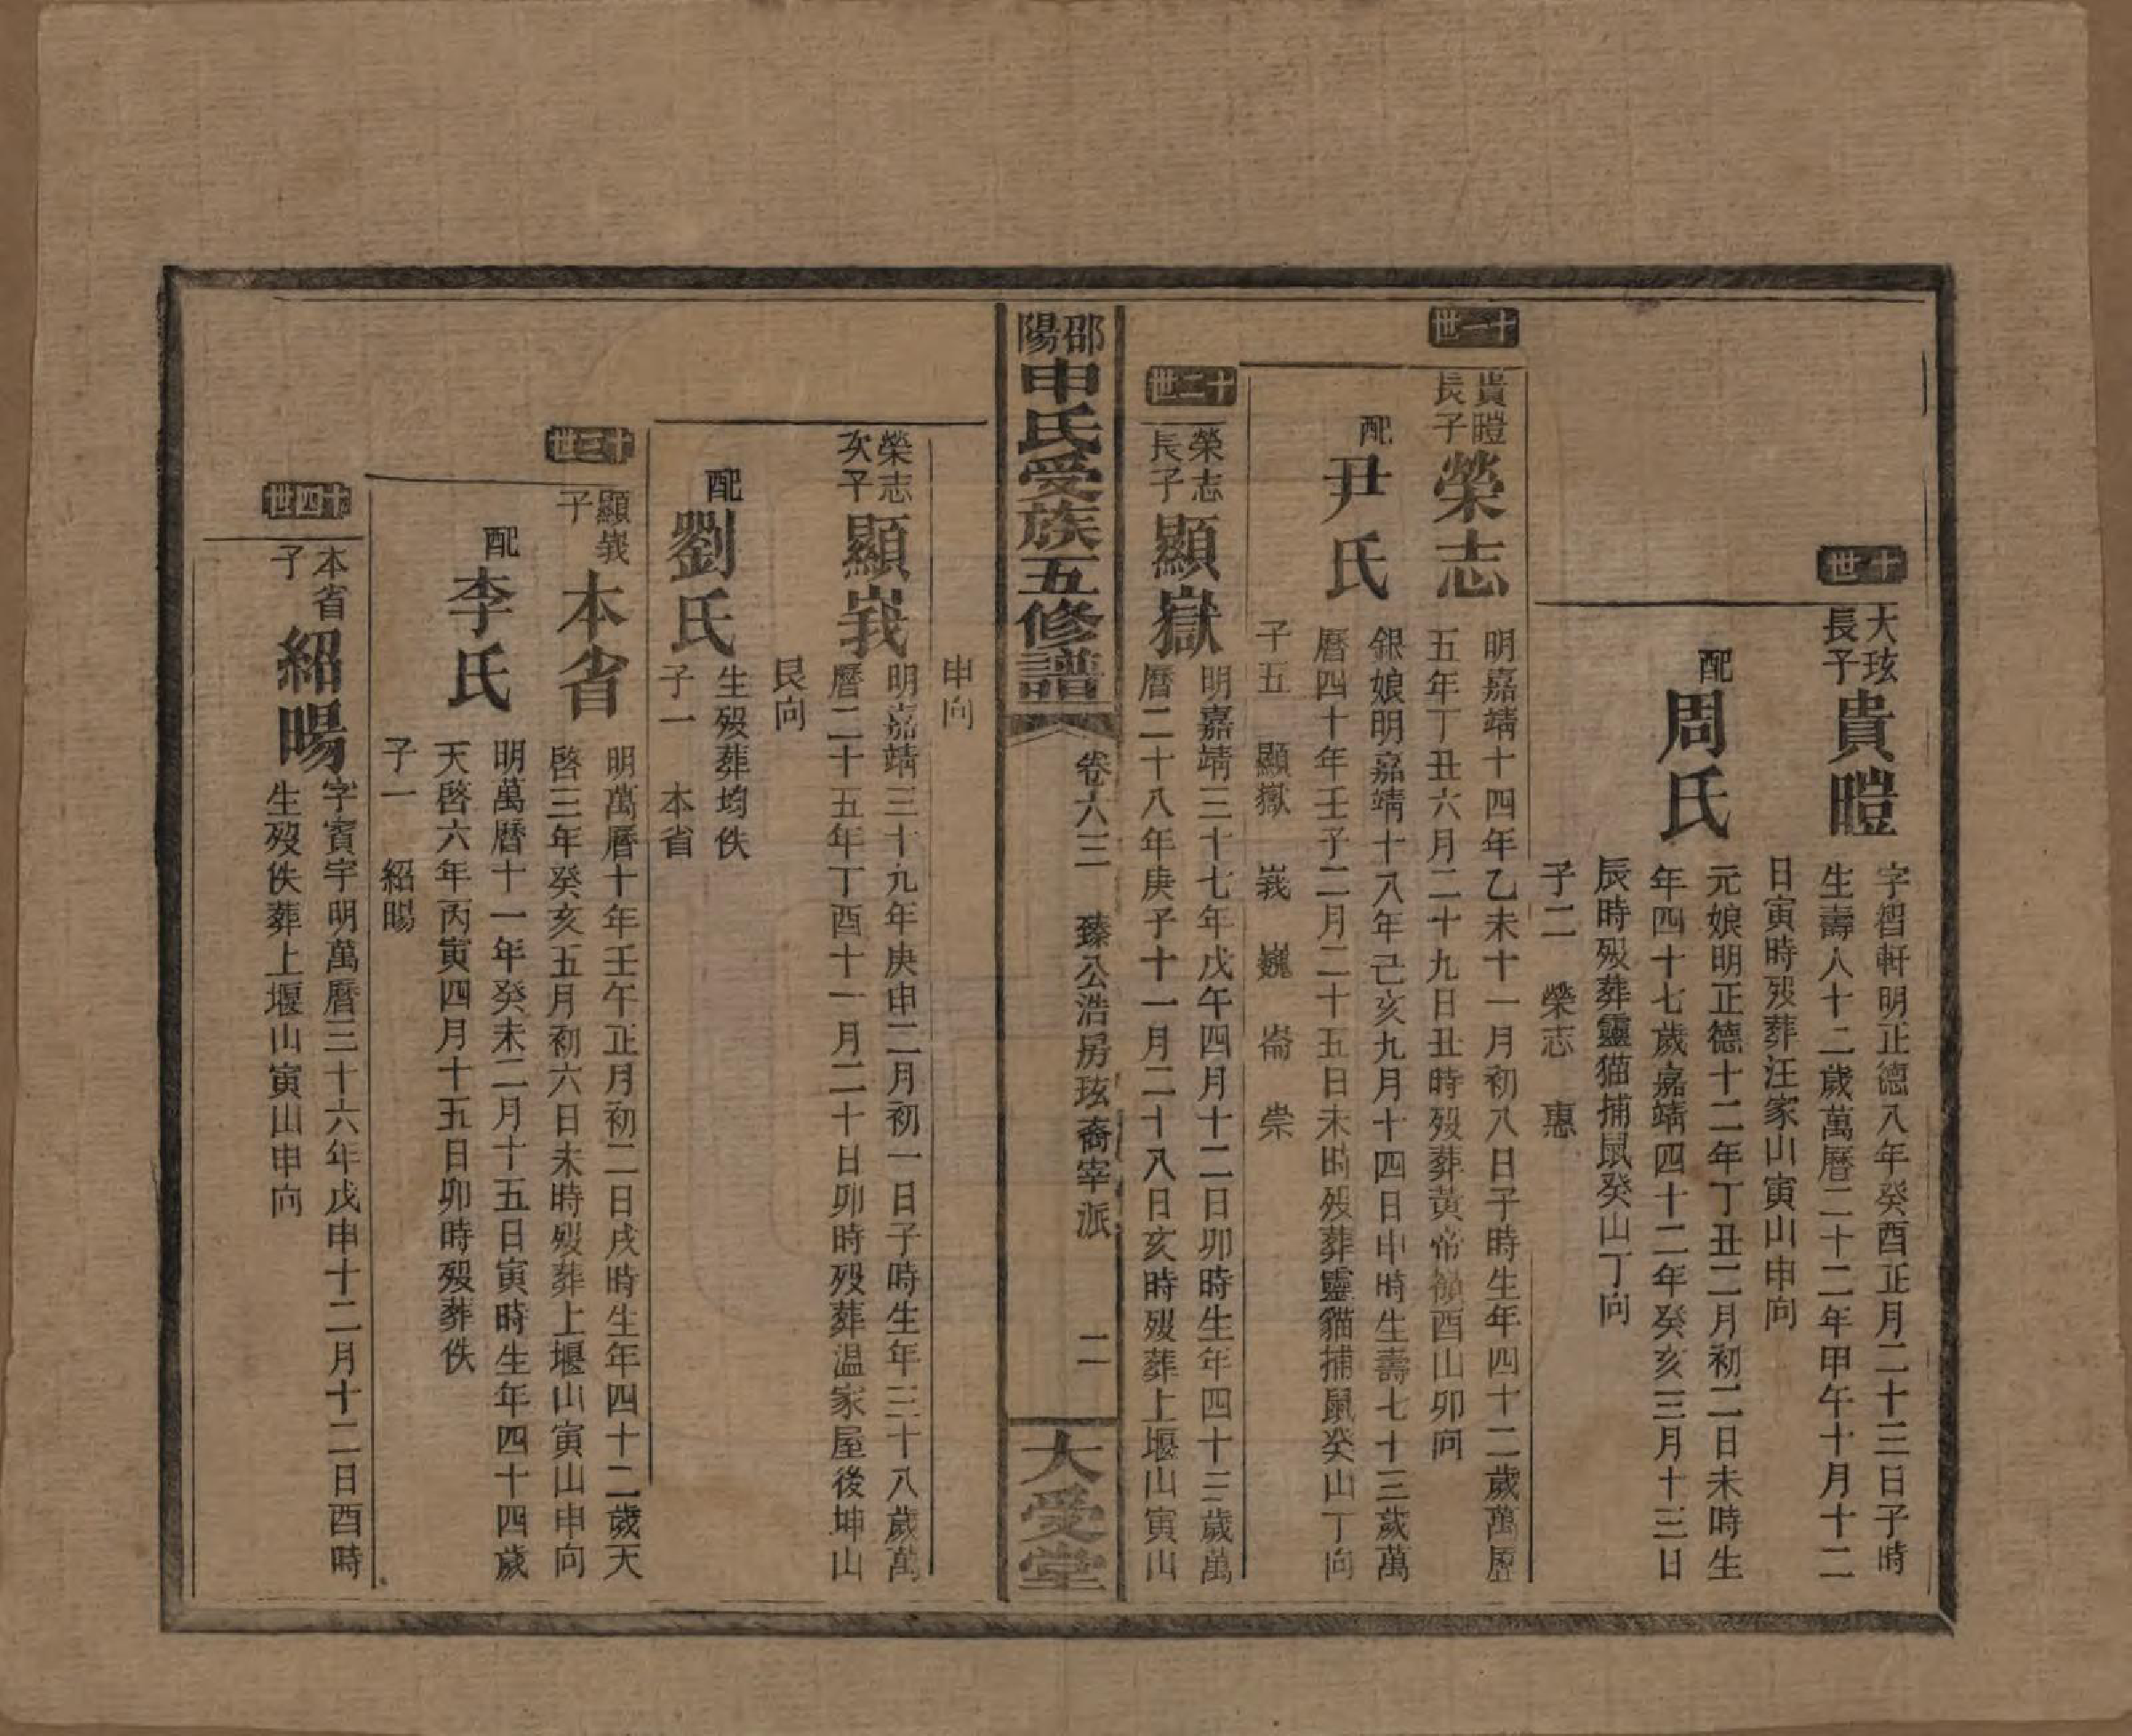 十世
大玹長子
貴暟
字智軒明正德八年癸酉正月二十三日子時
生壽八十二歲萬曆二十二年甲午十月十二
日寅時歿葬汪家山寅山申向
配周氏
元娘明正德十二年丁丑二月初二日未時生
年四十七歲嘉靖四十二年癸亥三月十三日
辰時歿葬靈猫捕鼠癸山丁向
子二 榮志 惠
十一世
貴暟長子
榮志
明嘉靖十四年乙未十一月初八日子時生年四十二歲萬曆
五年丁丑六月二十九日丑時歿葬黃帝嶺酉山卯向
配尹氏
銀娘明嘉靖十八年己亥九月十四日申時生壽七十三歲萬
曆四十年壬子二月二十五日未時歿葬靈貓捕鼠癸山丁向
子五 顯嶽 峩 巍 崙 崇
十二世
榮志長子
顯嶽
明嘉靖三十七年戊午四月十二日卯時生年四十三歲萬
曆二十八年庚子十一月二十八日亥時歿葬上堰山寅山
邵陽申氏受族五修譜
卷六三 臻公浩房玹裔宰派 二
大受堂
申向
榮志次子
顯峩
明嘉靖三十九年庚申二月初一日子時生年三十八歲萬
曆二十五年丁酉十一月二十日卯時歿葬温家屋後坤山
艮向
配劉氏
生歿葬均佚
子一 本省
十三世
顯峩子
本省
明萬曆十年壬午正月初二日戌時生年四十二歲天
啓三年癸亥五月初六日未時歿葬上堰山寅山申向
配李氏
明萬曆十一年癸未二月十五日寅時生年四十四歲
天啓六年丙寅四月十五日卯時歿葬佚
子一 紹暘
十四世
本省子
紹暘
字賓宇明萬曆三十六年戊申十二月十二日酉時
生歿佚葬上堰山寅山申向